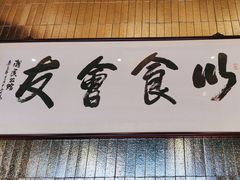 以食會友